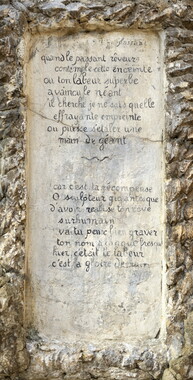 quand le passant rêveur
contemple cette enceinte
ou ton labeur superbe
a vaincu le néant
il cherche je ne sais quelle
effrayante empreinte
ou puisse se lire une
main de géant
car c'est ta récompense
O sculpteur gigantesque
d'avoir réalisé ton rêve
surhumain
va tu peux bien graver
ton nom à chaque fresque
hier c'était le labeur
c'est la gloire demain